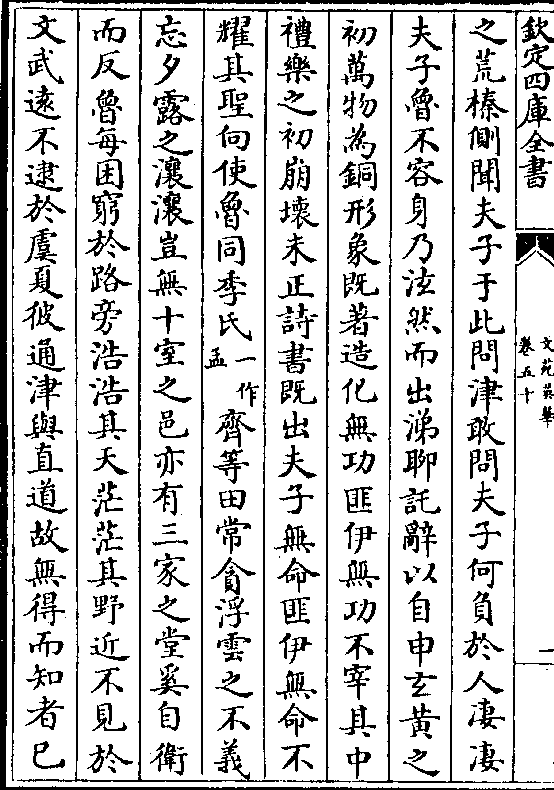 欽定四庫全書
文苑英華
卷五十
一
之荒榛側聞夫子于此問津敢問夫子何負於人凄凄
夫子魯不容身乃泫然而出涕聊託辭以自申玄黃之
初萬物為銅形象既著造化無功匪伊無功不宰其中
禮樂之初崩壞未正詩書既出夫子無命匪伊無命不
耀其聖向使魯同季氏一作孟齊等田常貪浮雲之不義
忘夕露之瀼瀼豈無十室之邑亦有三家之堂奚自衛
而反魯每困窮於路旁浩浩其天茫茫其野近不見於
文武遠不逮於虞夏彼通津與直道故無得而知者已